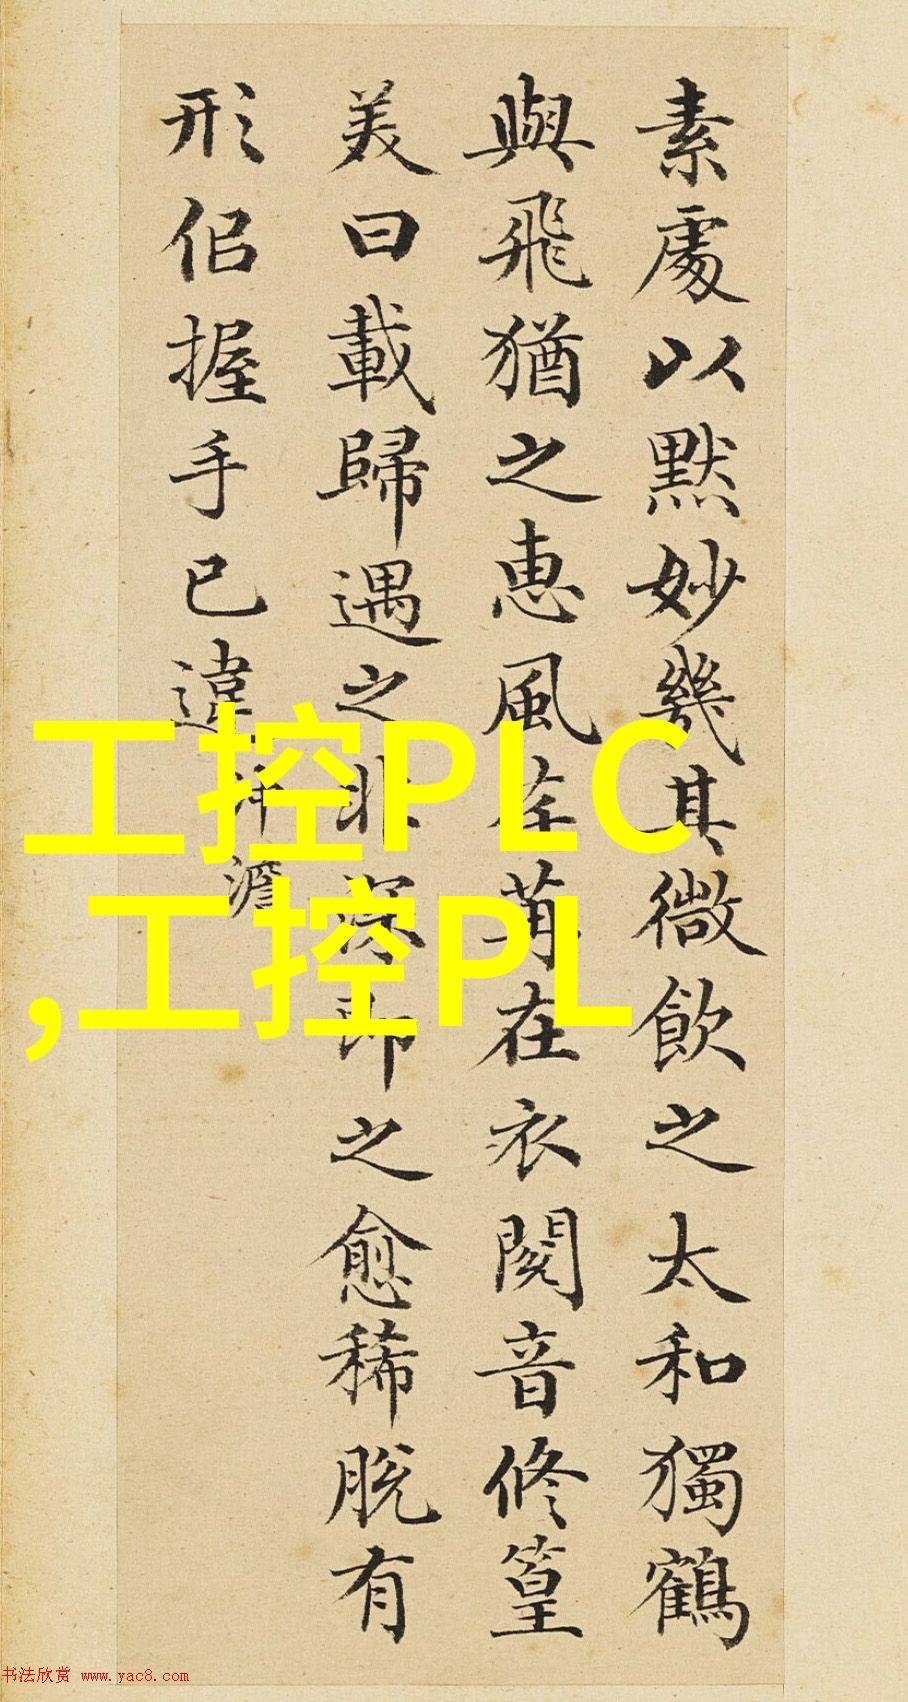 素處以默妙幾其微飲之太和獨鶴
與飛猶之惠風荏苒在衣閱音修篁
美曰載歸遇之非深即之愈稀脫有
形佀握手已違 沖澹
工控PLC
,工控PL
书法欣赏 www.yac8.com